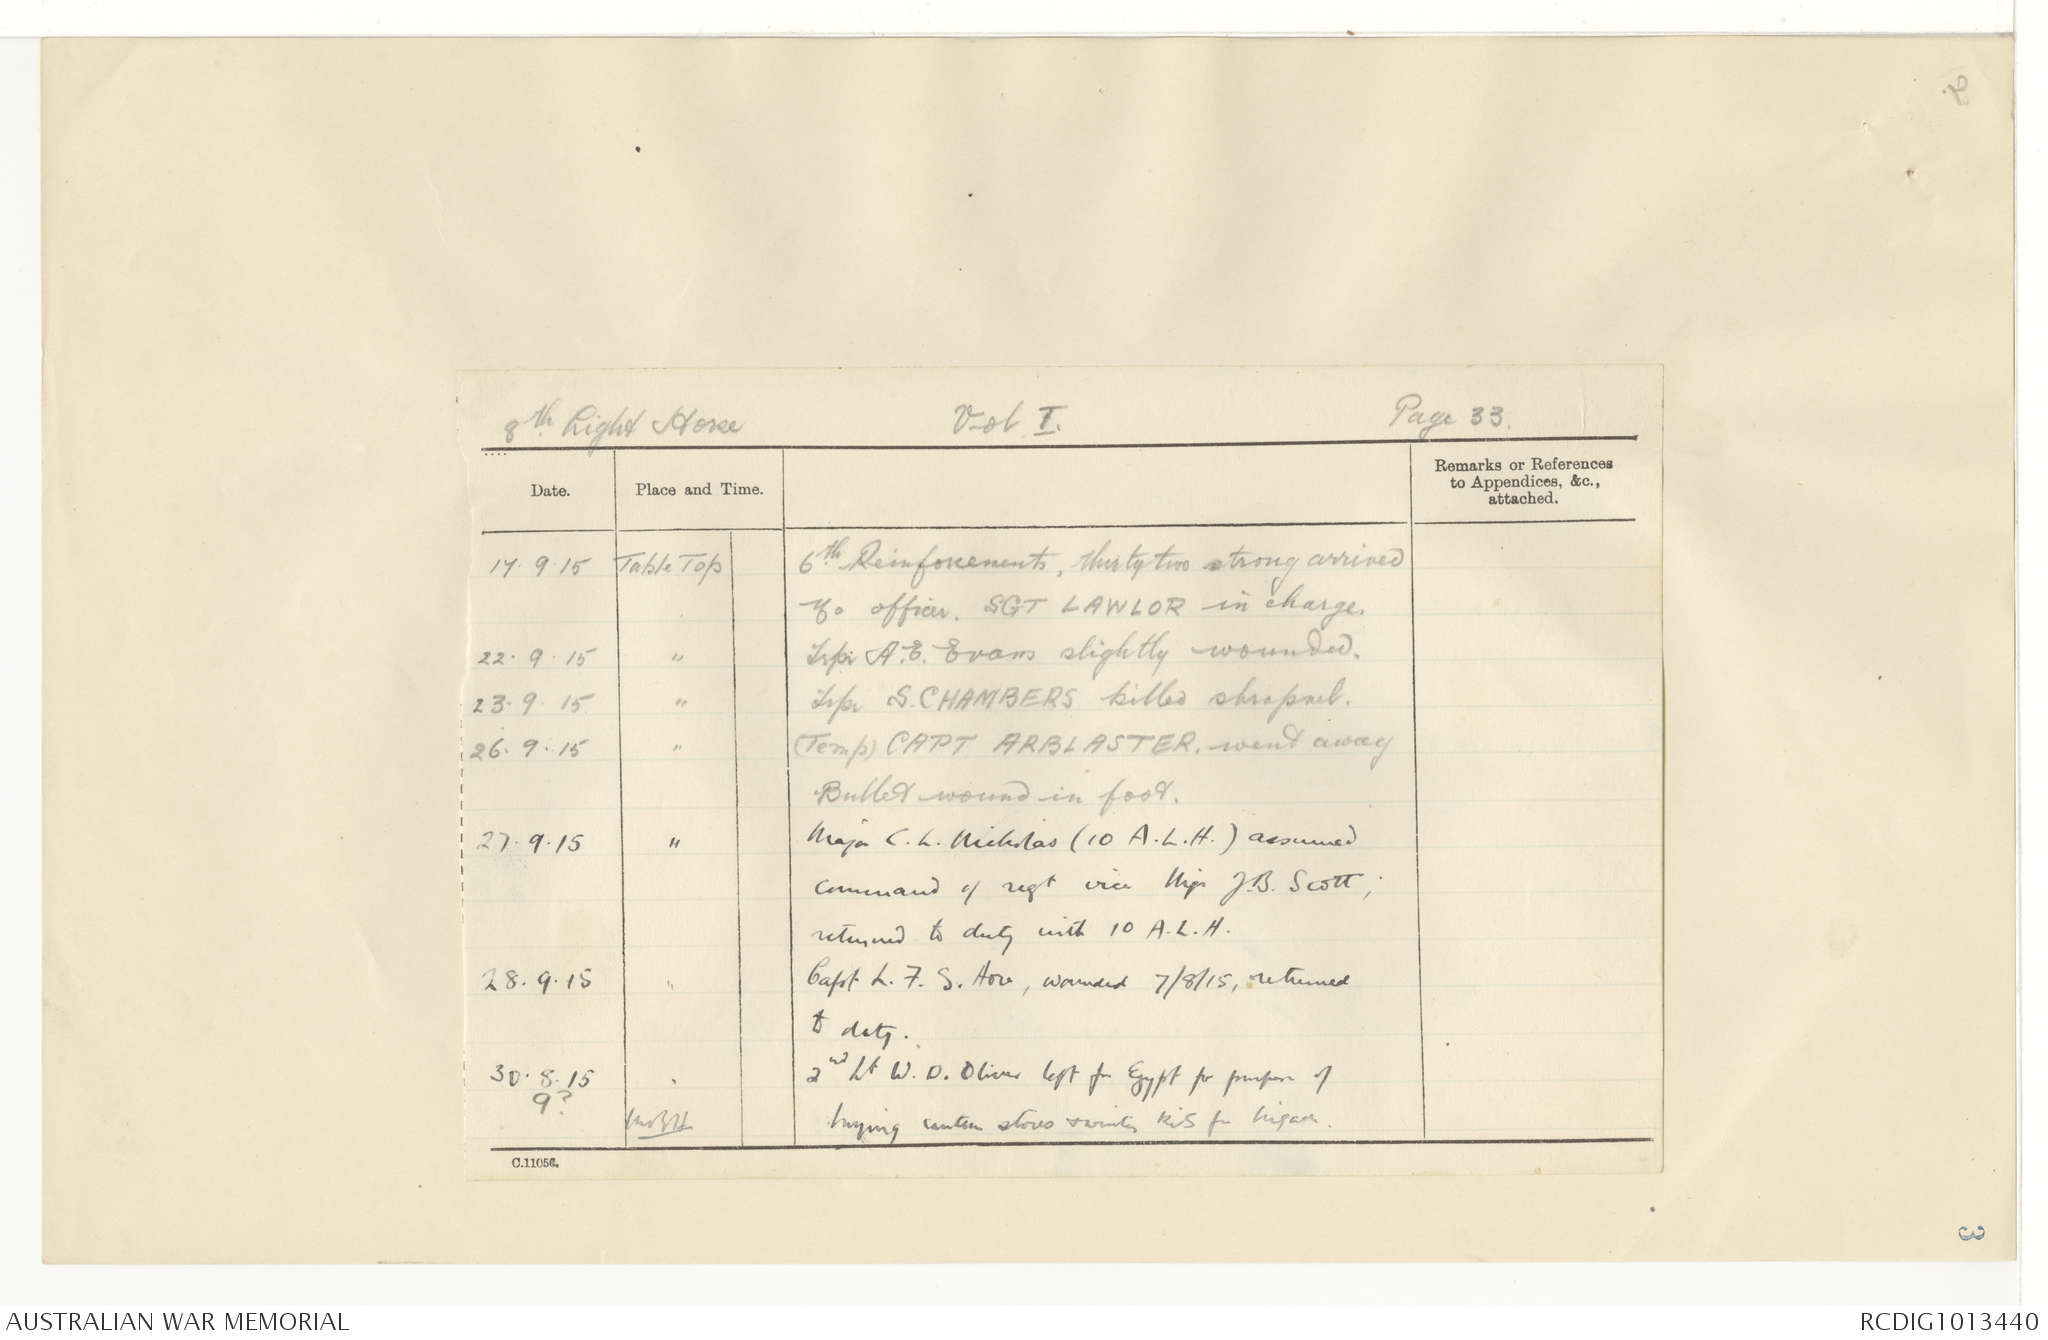 9.
8th Light Horse Vol I. Page 33.
Date. Place and Time. Remarks or References to Appendices, &c., attached.
17.9.15 Table Top 6th Reinforcements, thirty two strong arrived
No officer. SGT LAWLOR in charge.
22.9.15 " Trpr A.E. Evans slightly wounded.
23.9.15 " Trpr S. CHAMBERS killed shrapnel.
26.9.15 " (Temp) CAPT. ARBLASTER. went away
Bullet wound in foot.
27.9.15 " Major C. L. Nicholas (10 A.L.H.) assumed
command of regt vice Major J.B. Scott;
returned to duty with 10 A.L.H.
28.9.15 " Capt L. F. S. Hore, wounded 7/8/15, returned
to duty.
30.8.15 " 2nd Lt W. D. Oliver left for Egypt for purpose of
9?
buying canteen stores & winter kits for brigade.
C.11056.
3
AUSTRALIAN WAR MEMORIAL RCDIG1013440